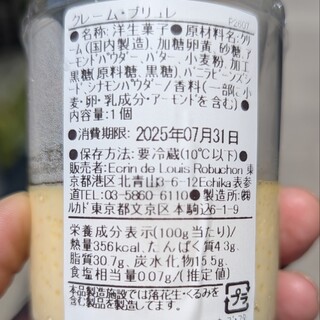 クレーム・ブリュレ
P2607
●名称:洋生菓子●原材料名:クリ
ーム(国内製造)、加糖卵黄、砂糖、ア
ーモンドパウダー、バター、小麦粉、加工
黒糖(原料糖、黒糖)、バニラビーンズシ
ード、シナモンパウダー/香料、(一部に小
麦・卵・乳成分・アーモンドを含む)●
内容量:1個
●消費期限: 2025年07月31日
●保存方法:要冷蔵(10℃以下)●
販売者:Ecrin de Louis Robuchon 東
京都港区北青山3-6-12Echika表参
道TEL:03-5860-6110●製造所:㈱
ルカド東京都文京区本駒込6-1-9
栄養成分表示(100g当たり)/
熱量356kcal、たんぱく質4.3g、
脂質30.7g、炭水化物15.5g、
食塩相当量0.07g/(推定値)
本品製造施設では落花生・くるみを
含む製品を製造しています。
プラ